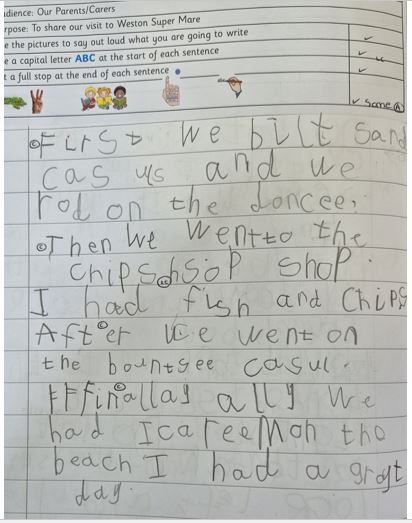 udience: Our Parents/Carers
rpose: To share our visit to Weston Super Mare
e the pictures to say out loud what you are going to write
e a capital letter ABC at the start of each sentence
t a full stop at the end of each sentence
some
First we bilt sand
casuls and we
rod on the doncee.
Then we wentto the
chips shop shop.
I had fish and chips
After we went on
the bountsee casul.
finallay ally we
had Icareem on the
beach I had a grayt
day.